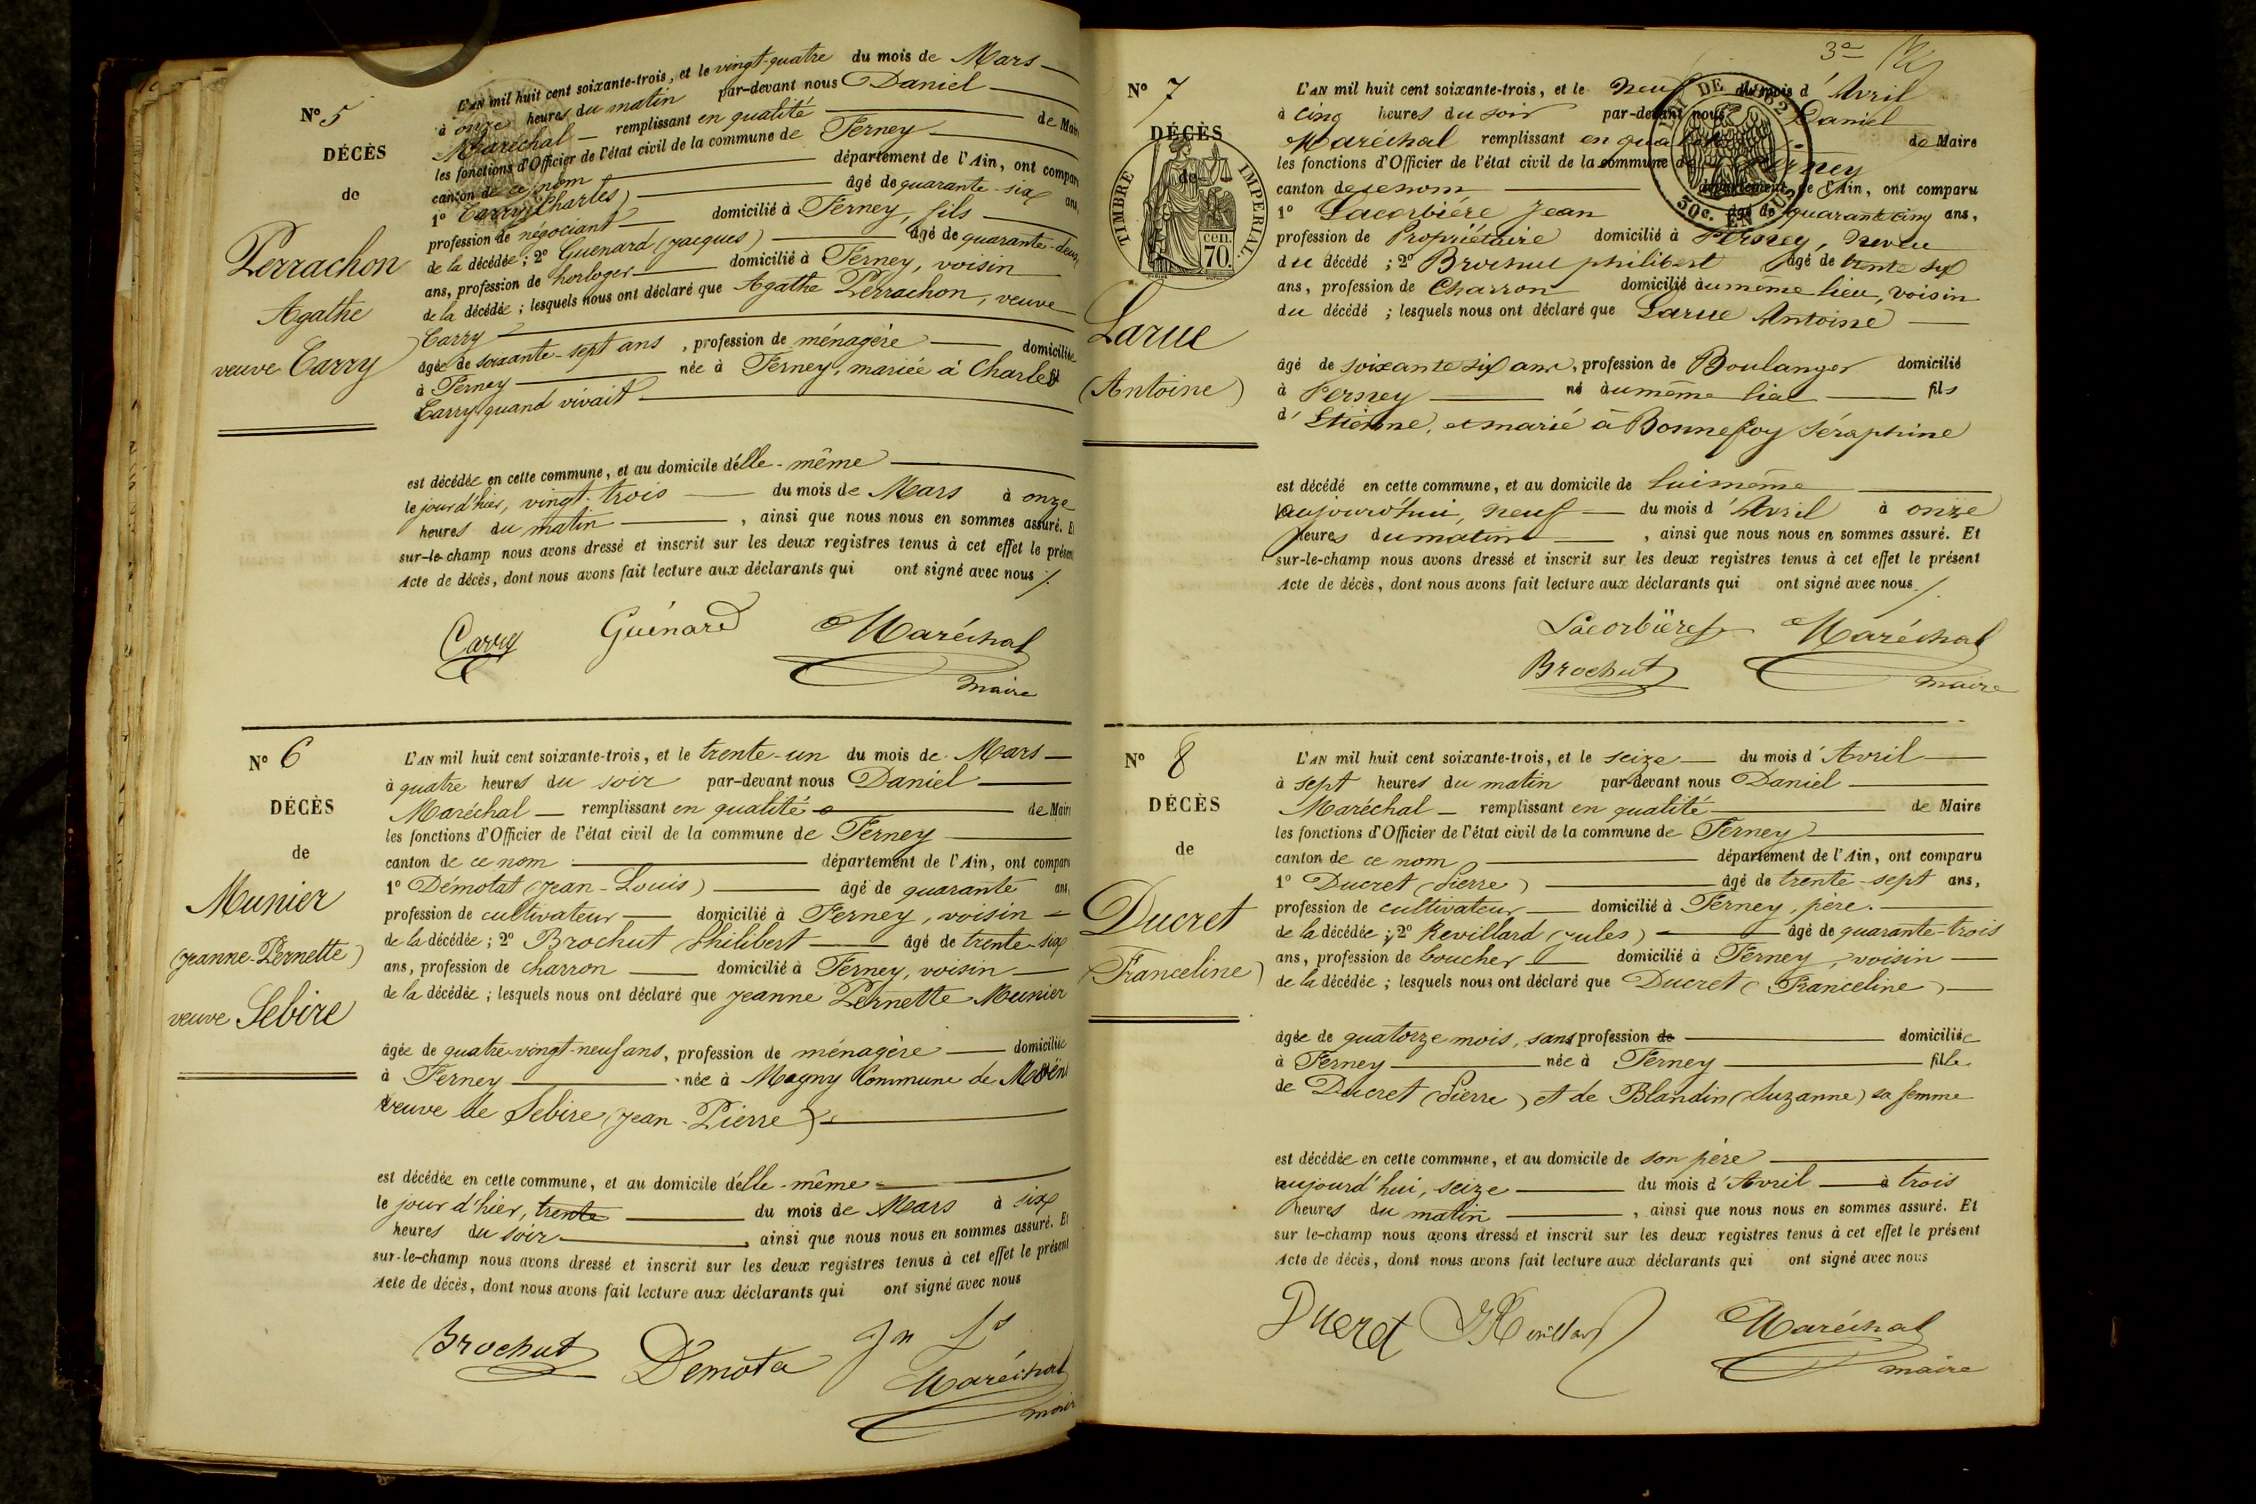 N° 5
DÉCÈS
de
Perrachon
Agathe
veuve Carry
L'AN mil huit cent soixante-trois, et le vingt-quatre du mois de Mars
à onze heures du matin par-devant nous Daniel
Maréchal remplissant en qualité de Mair
les fonctions d'Officier de l'état civil de la commune de Ferney
canton de ce nom département de l'Ain, ont compar
1° Carry (Charles) âgé de quarante-six ans
profession de négociant domicilié à Ferney, fils
de la décédée ; 2° Guenard (Jacques) âgé de quarante-deux
ans, profession de horloger domicilié à Ferney, voisin
de la décédée ; lesquels nous ont déclaré que Agathe Perrachon, veuve
Carry
âgée de soixante-sept ans, profession de ménagère domiciliée
à Ferney née à Ferney, mariée à Charles
Carry quand vivait
est décédée en cette commune, et au domicile d'elle-même
le jour d'hier, vingt-trois du mois de Mars à onze
heures du matin, ainsi que nous nous en sommes assuré. Et
sur-le-champ nous avons dressé et inscrit sur les deux registres tenus à cet effet le présen
Acte de décès, dont nous avons fait lecture aux déclarants qui ont signé avec nous
Carry Guénard Maréchal
maire
N° 6
DÉCÈS
de
Munier
(Jeanne-Pernette)
veuve Sebire
L'AN mil huit cent soixante-trois, et le trente-un du mois de Mars
à quatre heures du soir par-devant nous Daniel
Maréchal remplissant en qualité de Mair
les fonctions d'Officier de l'état civil de la commune de Ferney
canton de ce nom département de l'Ain, ont comparu
1° Démotat (Jean-Louis) âgé de quarante ans
profession de cultivateur domicilié à Ferney, voisin
de la décédée ; 2° Brochut Philibert âgé de trente-six
ans, profession de charron domicilié à Ferney, voisin
de la décédée ; lesquels nous ont déclaré que Jeanne Pernette Munier
âgée de quatre-vingt-neuf ans, profession de ménagère domiciliée
à Ferney née à Magny Commune de
veuve de Sebire (Jean-Pierre)
est décédée en cette commune, et au domicile d'elle-même
le jour d'hier, trente du mois de Mars à six
heures du soir, ainsi que nous nous en sommes assuré. Et
sur-le-champ nous avons dressé et inscrit sur les deux registres tenus à cet effet le présent
Acte de décès, dont nous avons fait lecture aux déclarants qui ont signé avec nous
Brochut Démota Jn Ls
Maréchal
maire
3e
N° 7
DÉCÈS
de
TIMBRE IMPÉRIAL.
cen.
70.
Larue
(Antoine)
LOI DE 1862
50c. EN SUS
L'AN mil huit cent soixante-trois, et le neuf du mois d'Avril
à cinq heures du soir par-devant nous Daniel
Maréchal remplissant en qualité de Maire
les fonctions d'Officier de l'état civil de la commune de Ferney
canton de ce nom département de l'Ain, ont comparu
1° Lacorbière Jean âgé de quarante cinq ans,
profession de Propriétaire domicilié à Ferney, neveu
du décédé ; 2° Brochut philibert âgé de trente six
ans, profession de Charron domicilié au même lieu, voisin
du décédé ; lesquels nous ont déclaré que Larue Antoine
âgé de soixante six ans, profession de Boulanger domicilié
à Ferney né au même lieu fils
d'Etienne, et marié à Bonnefoy Séraphine
est décédé en cette commune, et au domicile de lui même
aujourd'hui, neuf du mois d'Avril à onze
heures du matin, ainsi que nous nous en sommes assuré. Et
sur-le-champ nous avons dressé et inscrit sur les deux registres tenus à cet effet le présent
Acte de décès, dont nous avons fait lecture aux déclarants qui ont signé avec nous
Lacorbière Maréchal
Brochut maire
N° 8
DÉCÈS
de
Ducret
(Franceline)
L'AN mil huit cent soixante-trois, et le seize du mois d'Avril
à sept heures du matin par-devant nous Daniel
Maréchal remplissant en qualité de Maire
les fonctions d'Officier de l'état civil de la commune de Ferney
canton de ce nom département de l'Ain, ont comparu
1° Ducret (Pierre) âgé de trente-sept ans,
profession de cultivateur domicilié à Ferney, père.
de la décédée ; 2° Revillard (Jules) âgé de quarante-trois
ans, profession de boucher domicilié à Ferney, voisin
de la décédée ; lesquels nous ont déclaré que Ducret (Franceline)
âgée de quatorze mois, sans profession de domiciliée
à Ferney née à Ferney fille
de Ducret (Pierre) et de Blandin (Suzanne) sa femme
est décédée en cette commune, et au domicile de son père
aujourd'hui, seize du mois d'Avril à trois
heures du matin, ainsi que nous nous en sommes assuré. Et
sur le-champ nous avons dressé et inscrit sur les deux registres tenus à cet effet le présent
Acte de décès, dont nous avons fait lecture aux déclarants qui ont signé avec nous
Ducret JRevillard Maréchal
maire